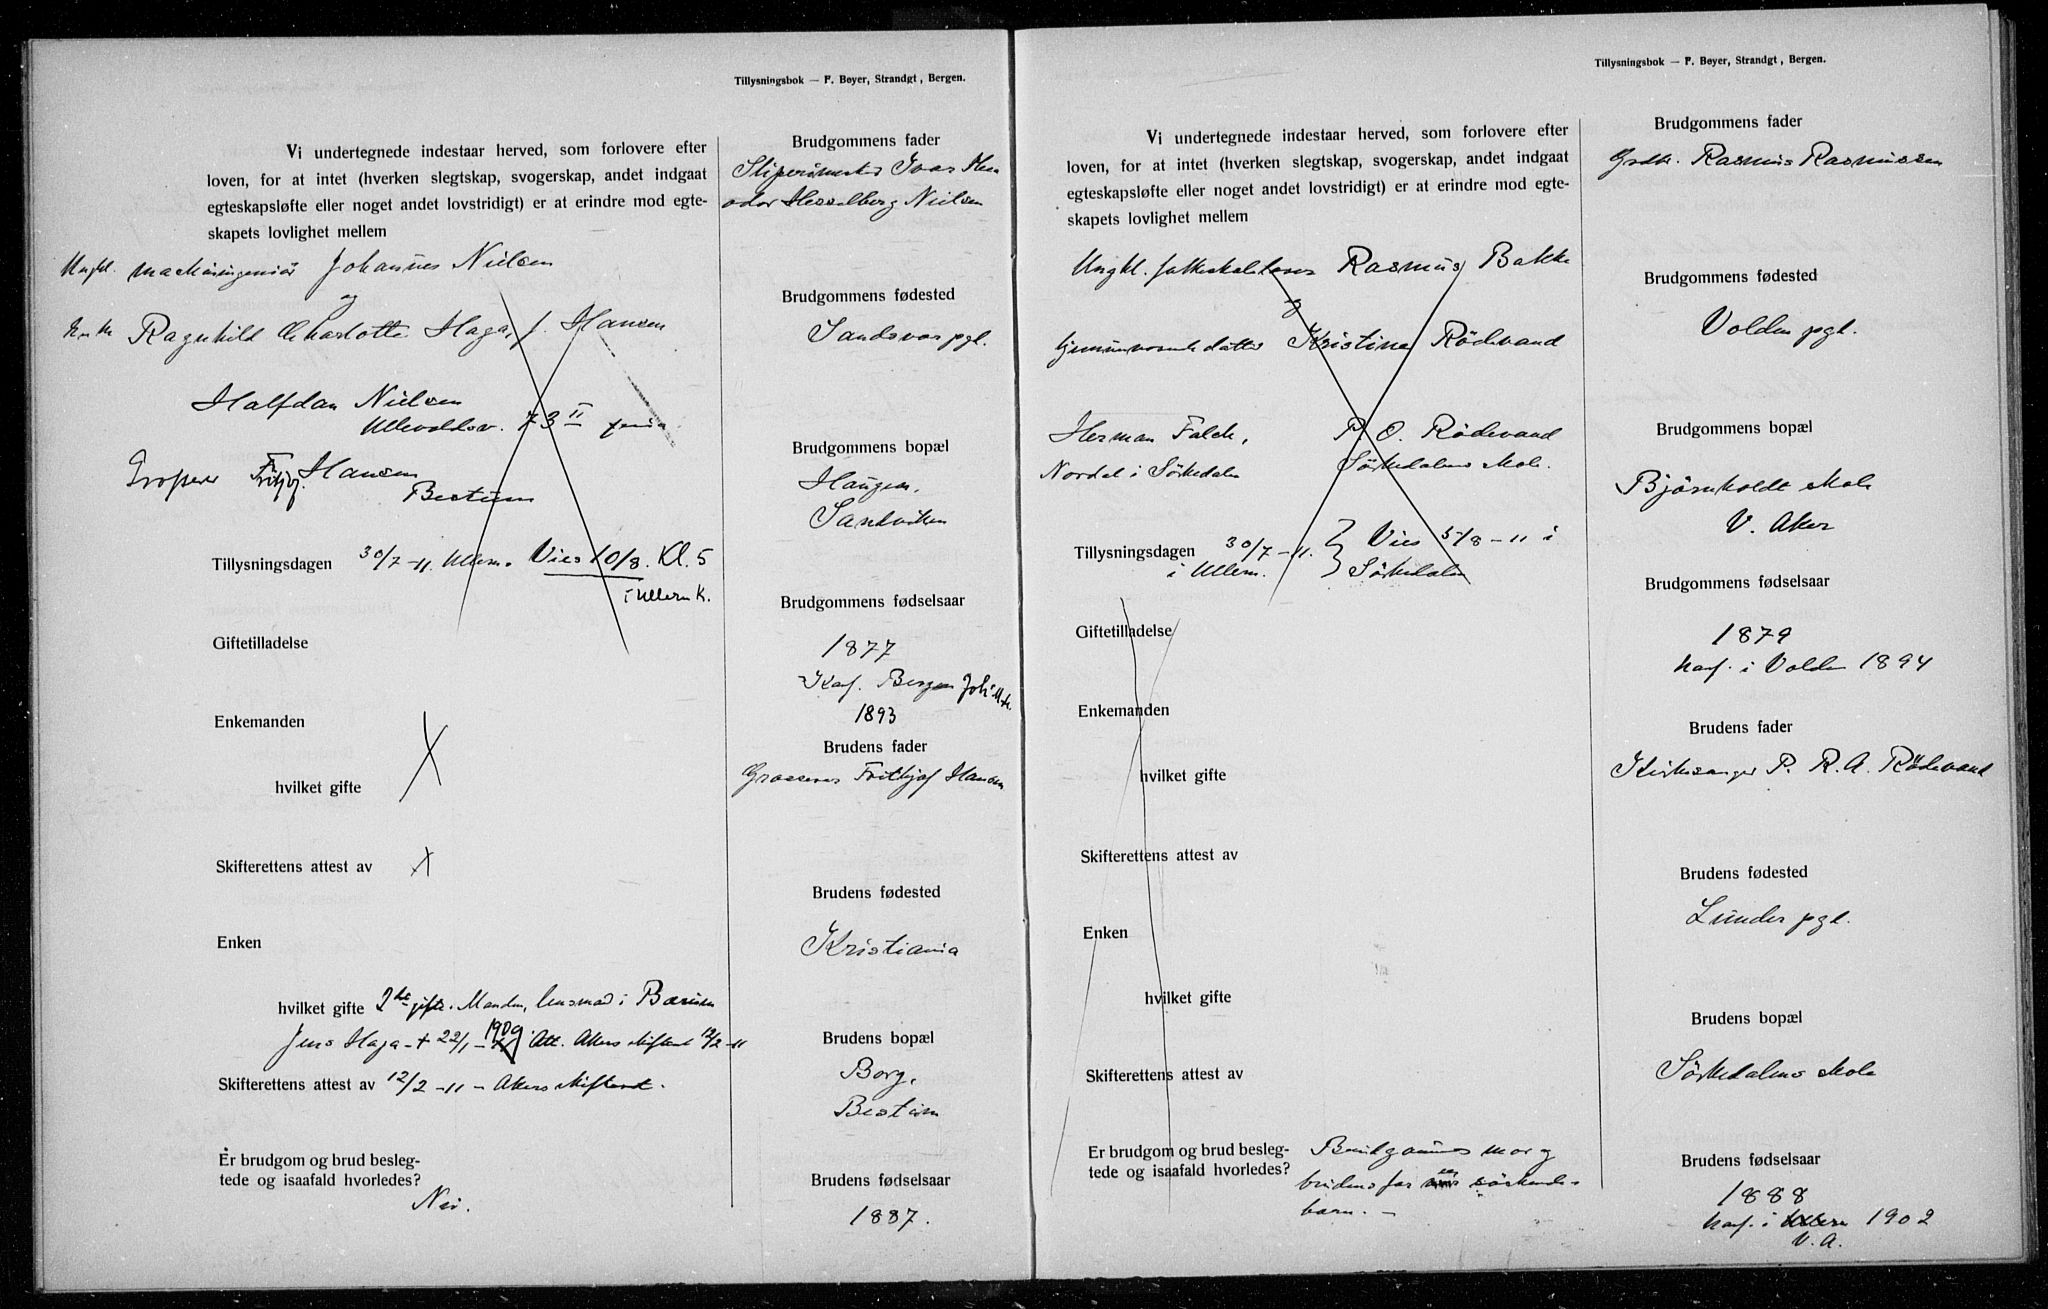 Tillysningsbok — F. Beyer, Strandgt, Bergen.
Vi undertegnede indestaar herved, som forlovere efter
loven, for at intet (hverken slegtskap, svogerskap, andet indgaat
egteskapsløfte eller noget andet lovstridigt) er at erindre mod egte-
skapets lovlighet mellem
Ungkl. maskiningeniør Johannes Nielsen
og
Enke Ragnhild Charlotte Haga, f. Hansen
Halfdan Nielsen
Ullevoldsv. 73 II
Grosserer Fritjof Hansen
Bestum
Tillysningsdagen 30/7 -11. Ullern. Vies 10/8. Kl. 5
i Ullern K.
Giftetilladelse
Enkemanden
hvilket gifte
Skifterettens attest av
Enken
hvilket gifte 2det gifte. Manden, lensmand i Bærum
Jens Haga - + 22/1 - 1909. Att. Akers skifteret 12/2 -11
Skifterettens attest av 12/2 -11 - Akers skifteret.
Er brudgom og brud besleg-
tede og isaafald hvorledes?
Nei.
Brudgommens fader
Ivar
Hesselberg Nielsen
Brudgommens fødested
Sandsvær pgl.
Brudgommens bopæl
Haugen,
Sandviken
Brudgommens fødselsaar
1877
Konf. Bergen Joh.
1893
Brudens fader
Grosserer Frithjof Hansen
Brudens fødested
Kristiania
Brudens bopæl
Borg,
Bestum
Brudens fødselsaar
1887.
Tillysningsbok — F. Beyer, Strandgt, Bergen.
Vi undertegnede indestaar herved, som forlovere efter
loven, for at intet (hverken slegtskap, svogerskap, andet indgaat
egteskapsløfte eller noget andet lovstridigt) er at erindre mod egte-
skapets lovlighet mellem
Ungkl. Rasmus Bakke
og
hjemmeværende datter Kristine Rödevand
Herman Falck, P. O. Rödevand
Nordal i Sörkedalen Sörkedalens skole.
Tillysningsdagen 30/7 -11. } Vies 5/8 -11 i
i Ullern. } Sörkedalen
Giftetilladelse
Enkemanden
hvilket gifte
Skifterettens attest av
Enken
hvilket gifte
Skifterettens attest av
Er brudgom og brud besleg-
tede og isaafald hvorledes?
Brudgommens mor og
brudens far er söskende-
barn. -
Brudgommens fader
Grdbr. Rasmus Rasmussen
Brudgommens fødested
Volden pgl.
Brudgommens bopæl
Björnholdt skole
V. Aker
Brudgommens fødselsaar
1879
konf. i Volden 1894
Brudens fader
Kirkesanger P. R. A. Rödevand
Brudens fødested
Lunder pgl.
Brudens bopæl
Sörkedalens skole
Brudens fødselsaar
1888
konf. i Ullern 1902
V. A.